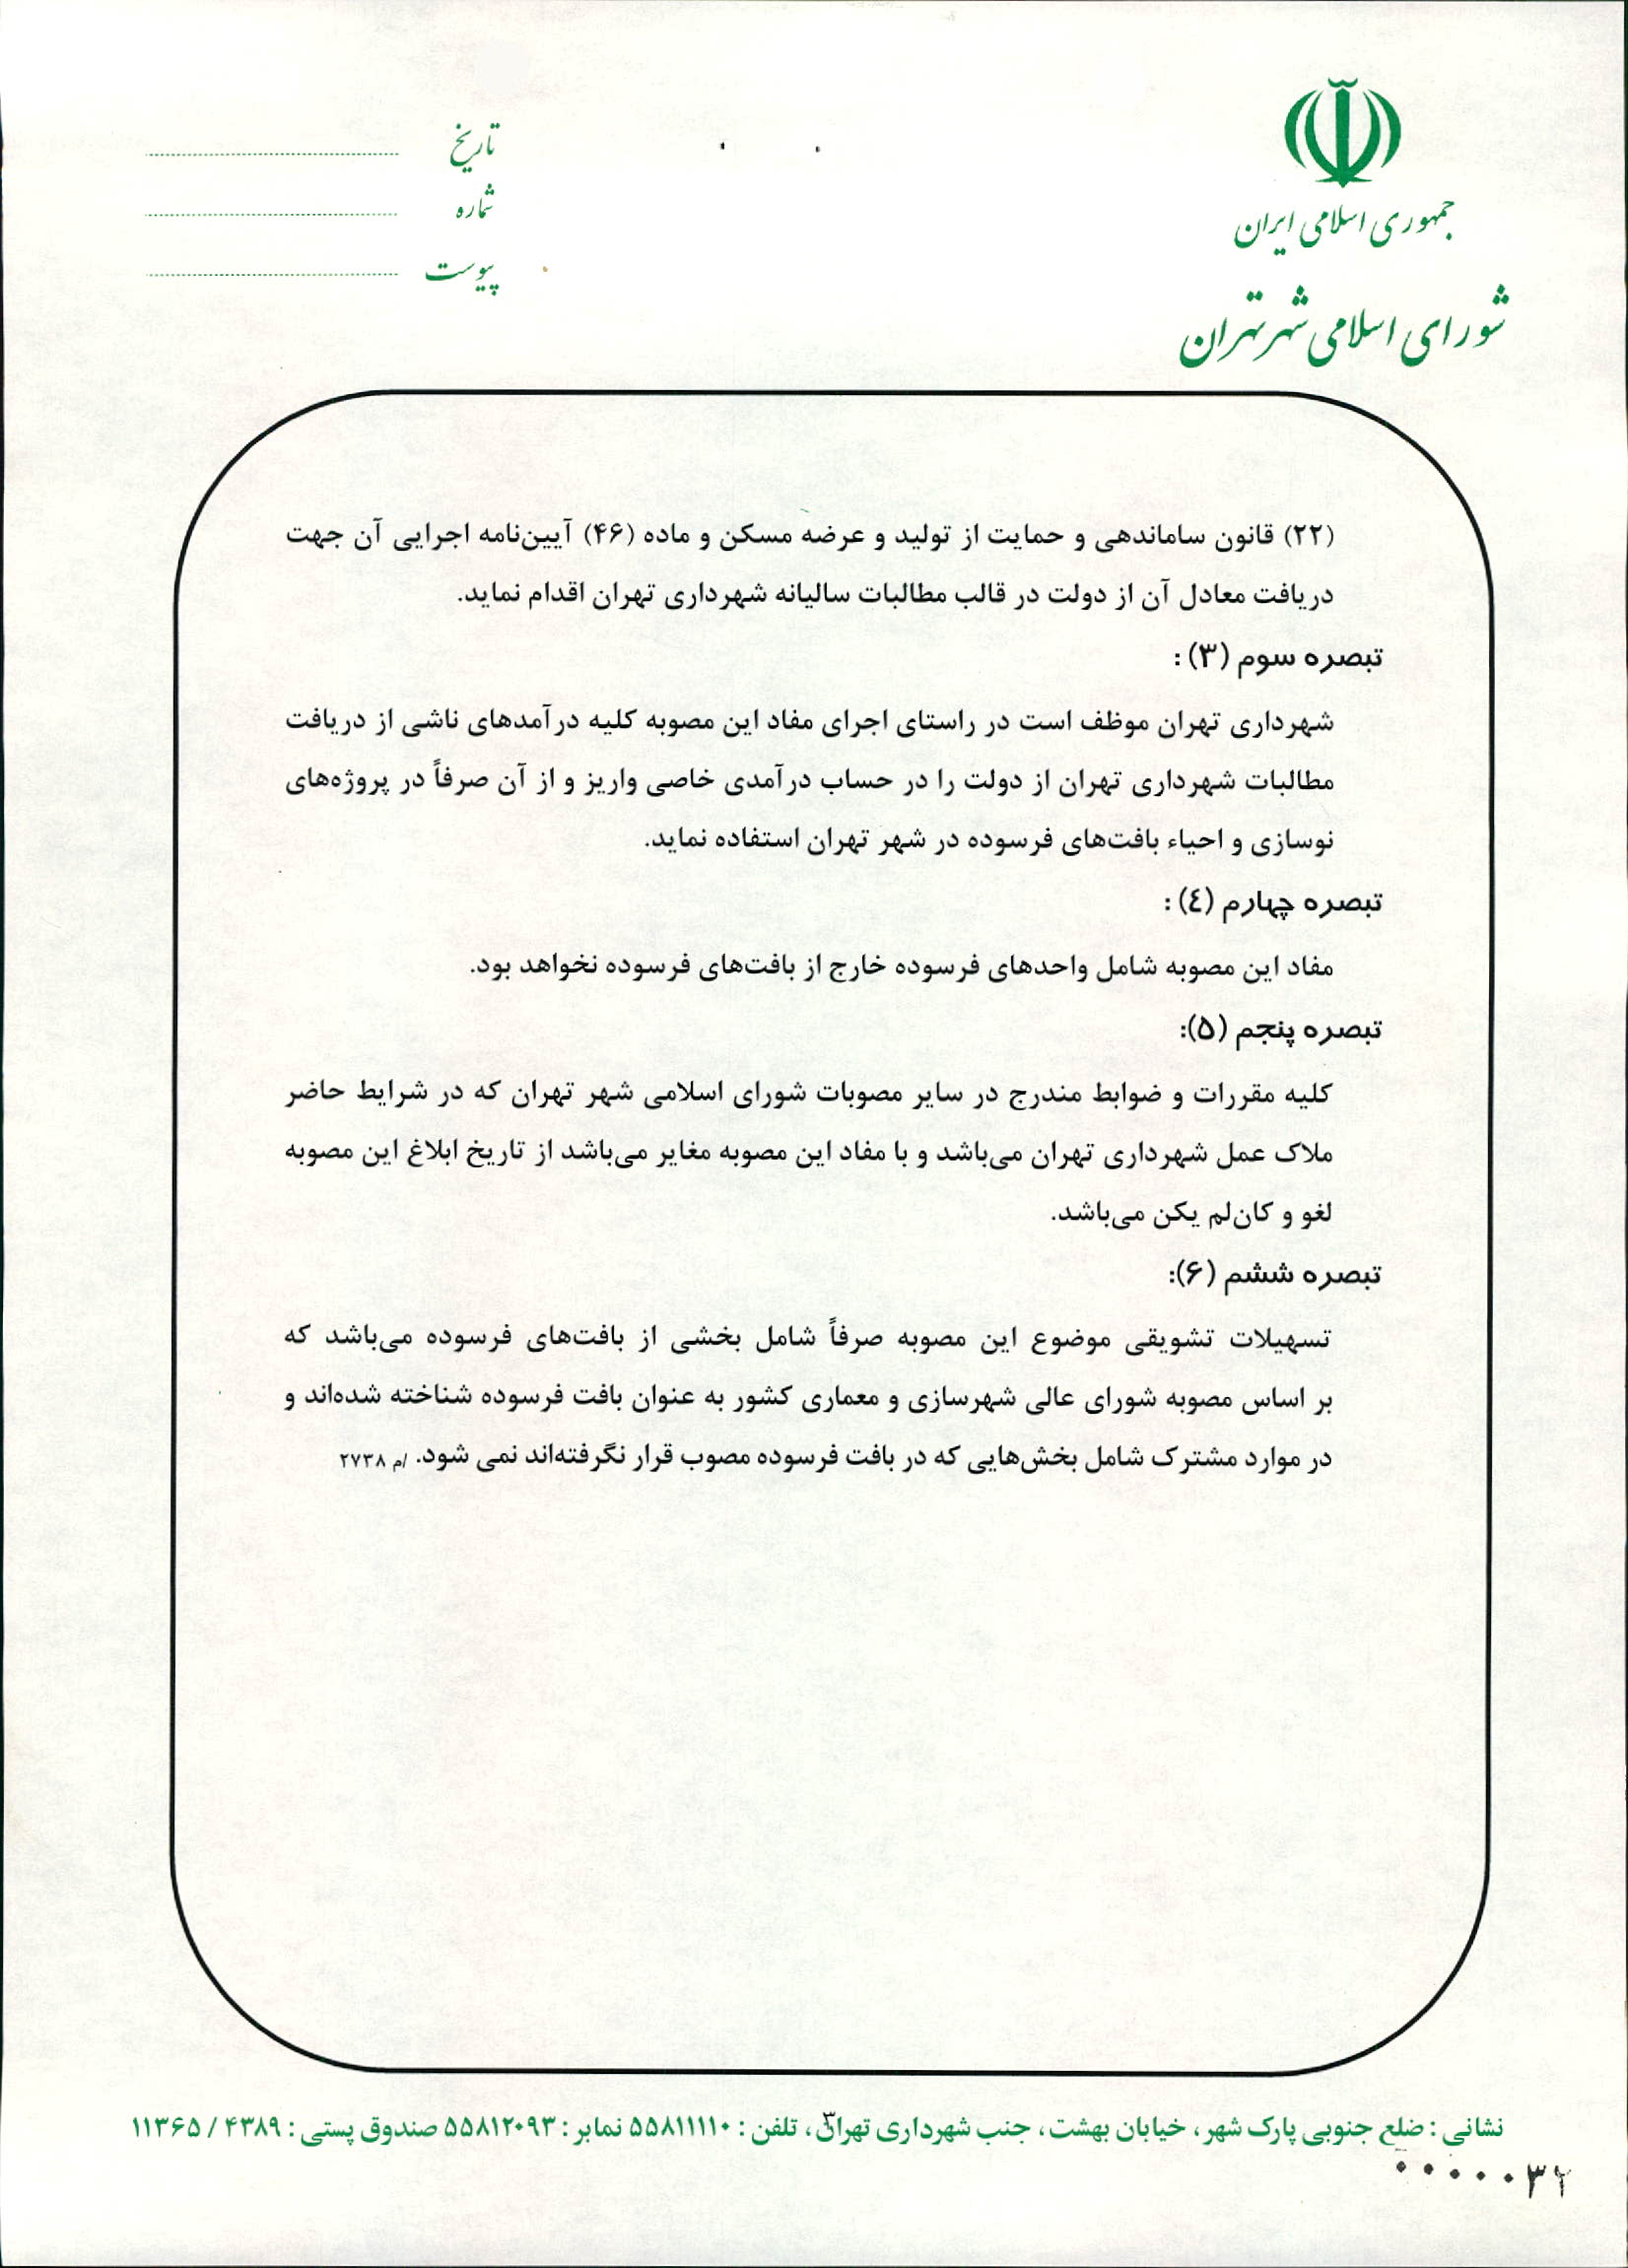 جمهوری اسلامی ایران
شورای اسلامی شهر تهران
تاریخ
شماره
پیوست
(۲۲) قانون ساماندهی و حمایت از تولید و عرضه مسکن و ماده (۴۶) آیین‌نامه اجرایی آن جهت
دریافت معادل آن از دولت در قالب مطالبات سالیانه شهرداری تهران اقدام نماید.
تبصره سوم (۳) :
شهرداری تهران موظف است در راستای اجرای مفاد این مصوبه کلیه درآمدهای ناشی از دریافت
مطالبات شهرداری تهران از دولت را در حساب درآمدی خاصی واریز و از آن صرفاً در پروژه‌های
نوسازی و احیاء بافت‌های فرسوده در شهر تهران استفاده نماید.
تبصره چهارم (٤) :
مفاد این مصوبه شامل واحدهای فرسوده خارج از بافت‌های فرسوده نخواهد بود.
تبصره پنجم (۵):
کلیه مقررات و ضوابط مندرج در سایر مصوبات شورای اسلامی شهر تهران که در شرایط حاضر
ملاک عمل شهرداری تهران می‌باشد و با مفاد این مصوبه مغایر می‌باشد از تاریخ ابلاغ این مصوبه
لغو و کان‌لم یکن می‌باشد.
تبصره ششم (۶):
تسهیلات تشویقی موضوع این مصوبه صرفاً شامل بخشی از بافت‌های فرسوده می‌باشد که
بر اساس مصوبه شورای عالی شهرسازی و معماری کشور به عنوان بافت فرسوده شناخته شده‌اند و
در موارد مشترک شامل بخش‌هایی که در بافت فرسوده مصوب قرار نگرفته‌اند نمی شود. /م ۲۷۳۸
۳
نشانی : ضلع جنوبی پارک شهر، خیابان بهشت، جنب شهرداری تهران، تلفن : ۵۵۸۱۱۱۱۰ نمابر : ۵۵۸۱۲۰۹۳ صندوق پستی : ۴۳۸۹ / ۱۱۳۶۵